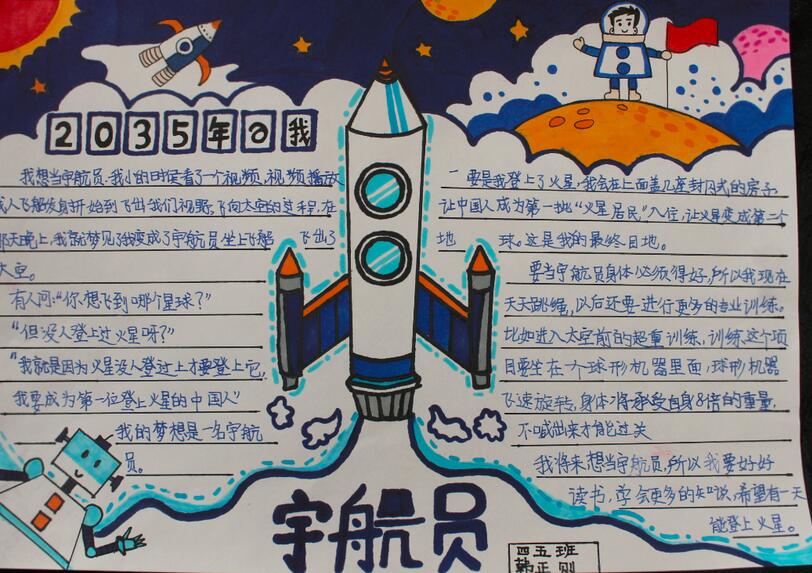 2035年的我
我想当宇航员.我小的时侯看了一个视频,视频播放
人飞船发身开始到飞出我们视野,飞向太空的过程,在
那天晚上,我就梦见了我变成了宇航员坐上飞船 飞出了
太空。
有人问:“你想飞到哪个星球?”
“但没人登上过火星呀?”
“我就是因为火星没人登过上才要登上它,
我要成为第一位登上火星的中国人”
我的梦想是一名宇航
员。
要是我登上了火星,我会在上面盖几座封闭式的房子,
让中国人成为第一批“火星居民”入住,让火星变成第二个
地 球。这是我的最终目地。
要当宇航员身体必须得好,所以我现在
天天跳绳,以后还要一进行更多的专业训练。
比如进入太空前的超重训练,训练这个项
目要坐在一个球形机器里面,球形机器
飞速旋转,身体将承受自身8倍的重量,
不喊出来才能过关
我将来想当宇航员,所以我要好好
读书,学会更多的知识,希望有一天
能登上火星。
宇航员
四五班
韩正则